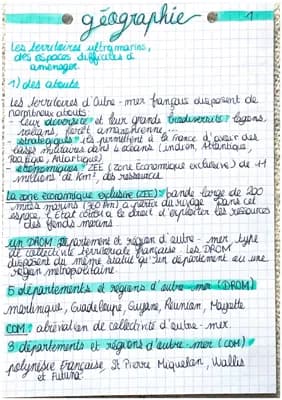 géographie
1
Les territoires ultramarins,
des espaces difficiles à
aménager.
1) des atouts
Les territoires d'Outre-mer français disposent de
nombreux atouts
- leur diversité et leur grande biodiversité : lagons,
volcans, forêt amazonienne...
- stratégiques : ils permettent à la France d'avoir des
bases militaires dans 4 océans (indien, Atlantique,
Pacifique, Antarctique)
- économiques : ZEE (Zone Economique exclusive) de 11
millions de Km², des ressources.
La zone économique exclusive (ZEE) : bande large de 200
miles marins (370 Km) à partir du rivage. Dans cet
espace, l'Etat côtier a le droit d'exploiter les ressources
des fonds marins
un DROM : département et région d'outre-mer, type
de collectivité territoriale française. les DROM
disposent du même statut qu'un département ou une
région métropolitaine.
5 départements et régions d'outre-mer (DROM)
martinique, Guadeloupe, Guyane, Réunion, Mayotte
COM : abréviation de collectivité d'outre-mer.
3 départements et régions d'outre-mer (COM)
polynésie Française, St Pierre Miquelon, Wallis
et Futuna.